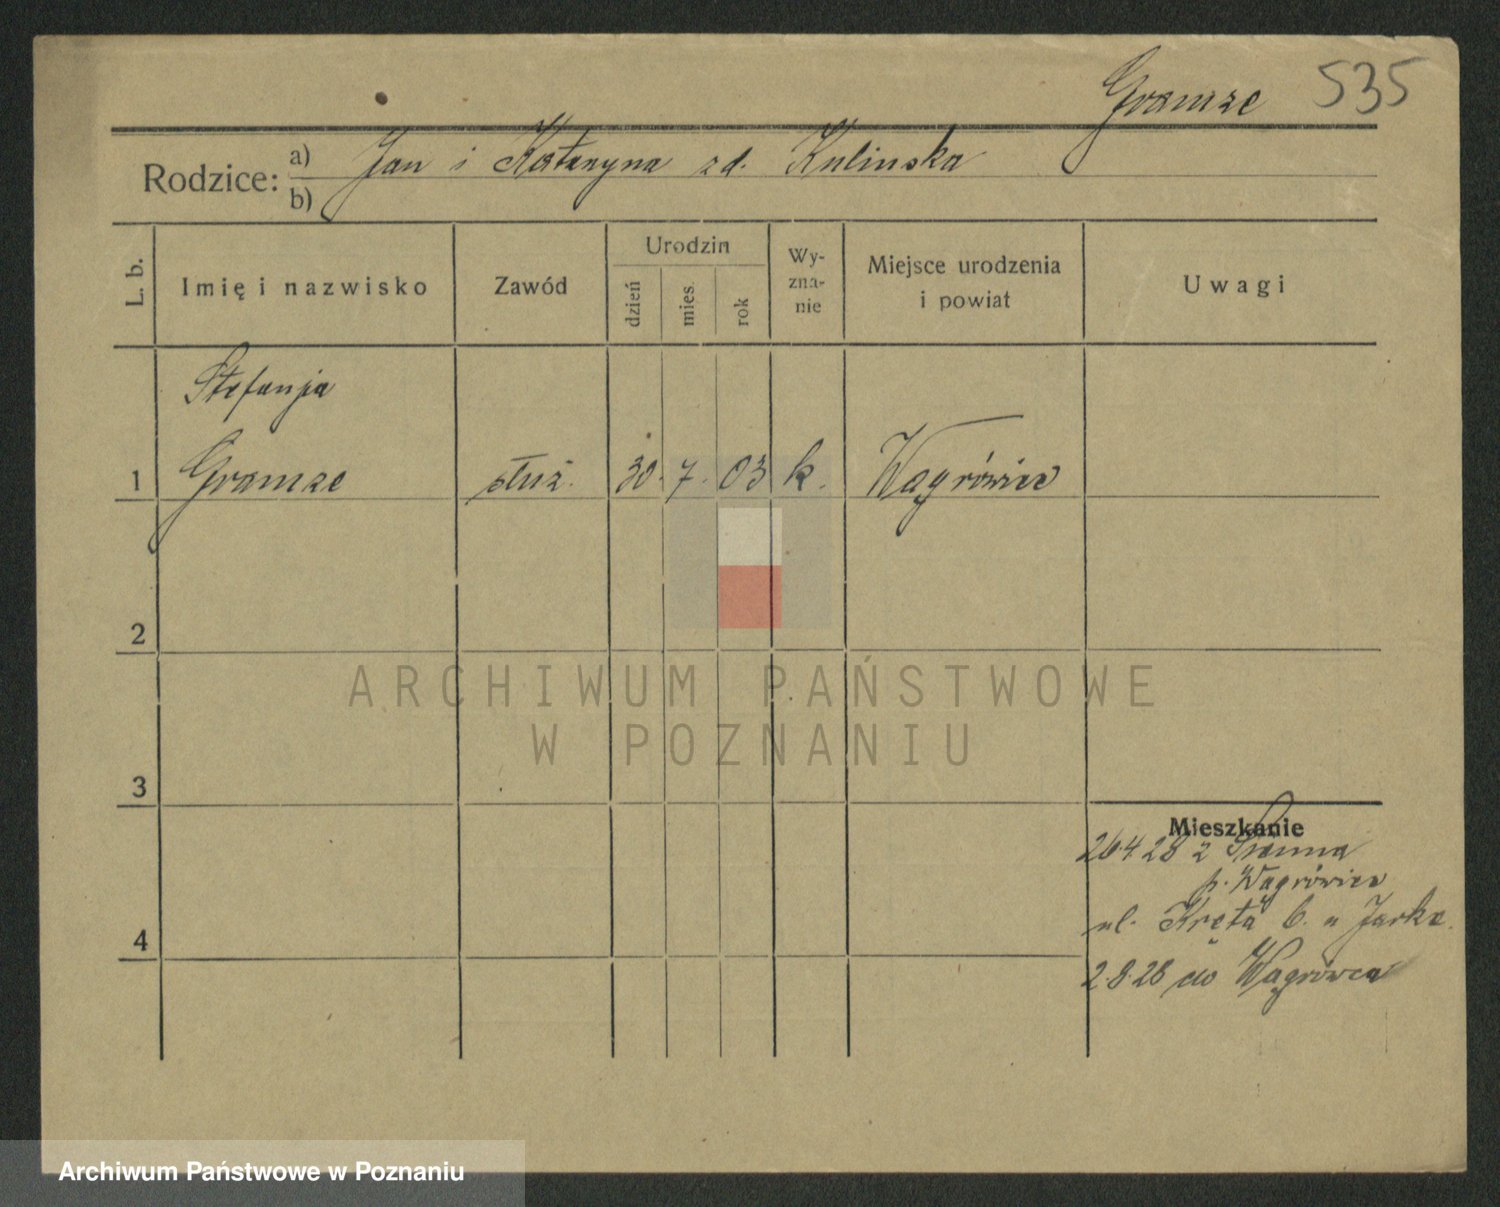 Gramze 535
Rodzice: a) Jan i Katarzyna zd. Kulinska
b)
L. b.
Imię i nazwisko
Zawód
Urodzin
dzień
mies.
rok
Wy-
zna-
nie
Miejsce urodzenia
i powiat
Uwagi
Stefanja
1 Gramze służ. 30. 7. 03 k. Wągrówiec
2
ARCHIWUM PAŃSTWOWE
W POZNANIU
3
Mieszkanie
26.4.28 z
p. Wągrówiec
ul. Kręta 6. u Jarka.
4
2.8.28 do Wągrówca
Archiwum Państwowe w Poznaniu